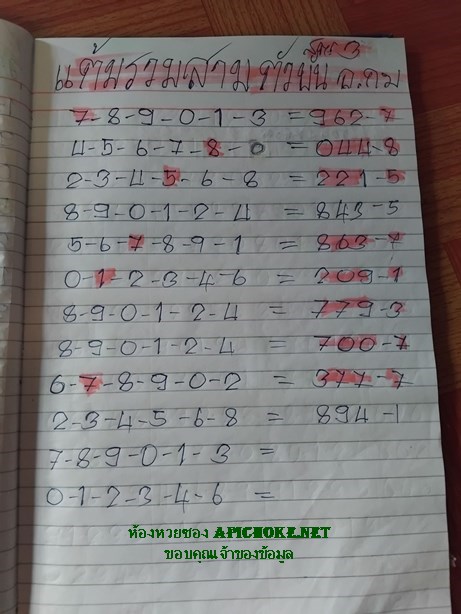 สูตร 3
แต้มรวมสามตัวบน อ.ถม
7-8-9-0-1-3 =962-7
4-5-6-7-8-0 =044-8
2-3-4-5-6-8 =221-5
8-9-0-1-2-4 =843-5
5-6-7-8-9-1 =863-7
0-1-2-3-4-6 =209-1
8-9-0-1-2-4 =779-3
8-9-0-1-2-4 =700-7
6-7-8-9-0-2 =377-7
2-3-4-5-6-8 =894-1
7-8-9-0-1-3 =
0-1-2-3-4-6 =
ห้องหวยซอง APICHOKE.NET
ขอบคุณเจ้าของข้อมูล